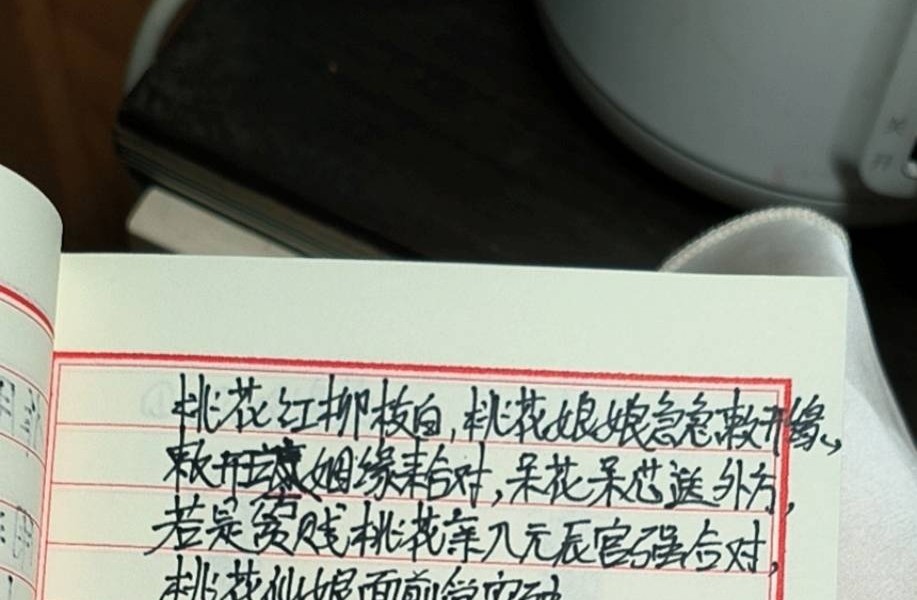 桃花红柳枝白，桃花娘娘急急敕开缘，
敕开 姻缘来合对，呆花呆芯送外方，
若是贫贱桃花亲入元辰宫强合对，
桃花仙娘面前